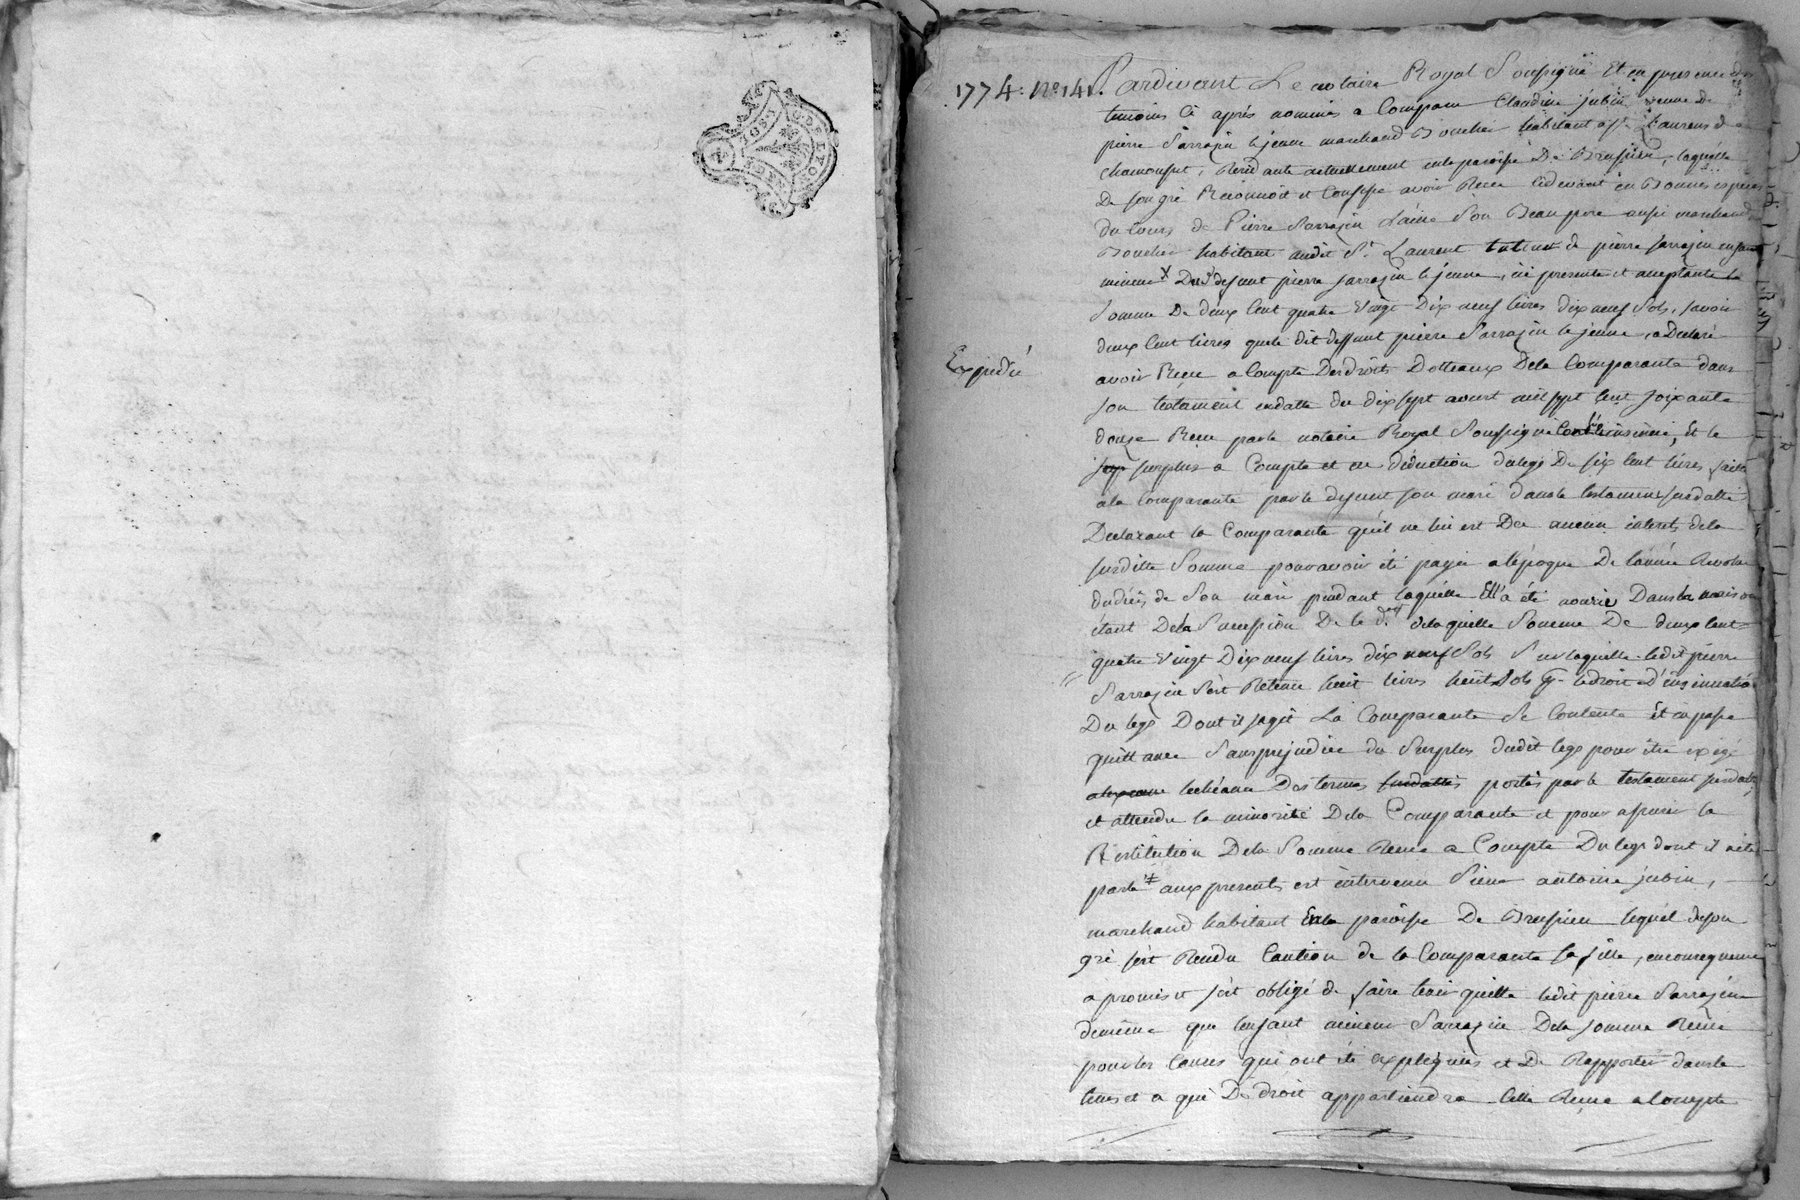 1774: N° 141.
Pardevant Le notaire Royal Soussigné Et en presence des
temoins Cy aprés nommés a Comparu Claudine jubin veuve De
pierre Sarrazin le jeune marchand Boucher habitant a St Laurens de
chamousset, Residante actuellement en la paroisse De Brussieu, laquelle
De son gré Reconnoit et Confesse avoir Receu cy devant en Bonnes especes
du Cours de Pierre Sarrazin L'ainé Son Beau pere aussi marchand
Boucher habitant audit St Laurent tuteur de pierre Sarrazin enfant
mineur Dud defunt pierre sarrazin le jeune, icy present et acceptant la
Somme De deux Cent quatre Vingt Dix neuf livres dix neuf Sols, savoir
deux Cent livres que le dit deffunt pierre Sarrazin le jeune, a Declaré
Expedié
avoir Receu a Compte Des droits Dotteaux De la Comparante dans
son testament en datte du dix sept avril mil sept Cent soixante
douze Receu par le notaire Royal Soussigné insinué, Et le
surplus a Compte et en déduction du legs De six Cent livres, fait
a la Comparante par le defunt son mari dans le testament susdatté
Declarant la Comparante qu'il ne lui est Du aucun interets de la
susditte Somme pour avoir été payée a l'époque De l'année Revolue
du décés de Son mari pendant laquelle Ell'a été nourie Dans la maison
étant De la Succession De le dt de laquelle Somme De deux Cent
quatre Vingt Dix neuf livres dix neuf Sols Sur laquelle ledit pierre
Sarrazin s'est Retenu huit livres huit Sols pr le droit D'insinuation
Du legs Dont il sagit La Comparante Se Contente Et en passe
quittance Sans prejudice du Surplus dudit legs pour être exigé
a lecheance Des termes susdattés portés par le testament susdatté
et attendu la minorité De la Comparante et pour assurer la
Restitution De la Somme Receue a Compte Du legs dont il a été
parlé aux presentes est intervenu Sieur antoine jubin,
marchand habitant En la paroisse De Brussieu lequel de son
gré s'est Rendu Caution de la Comparante sa fille, en consequence
a promis et s'est obligé de faire tenir quitte ledit pierre Sarrazin
de même que l'enfant mineur Sarrazin De la somme Receue
pour les Causes qui ont été expliquées et De Rapporter dans le
tems et a qui De droit appartiendra Celle Receue a Compte